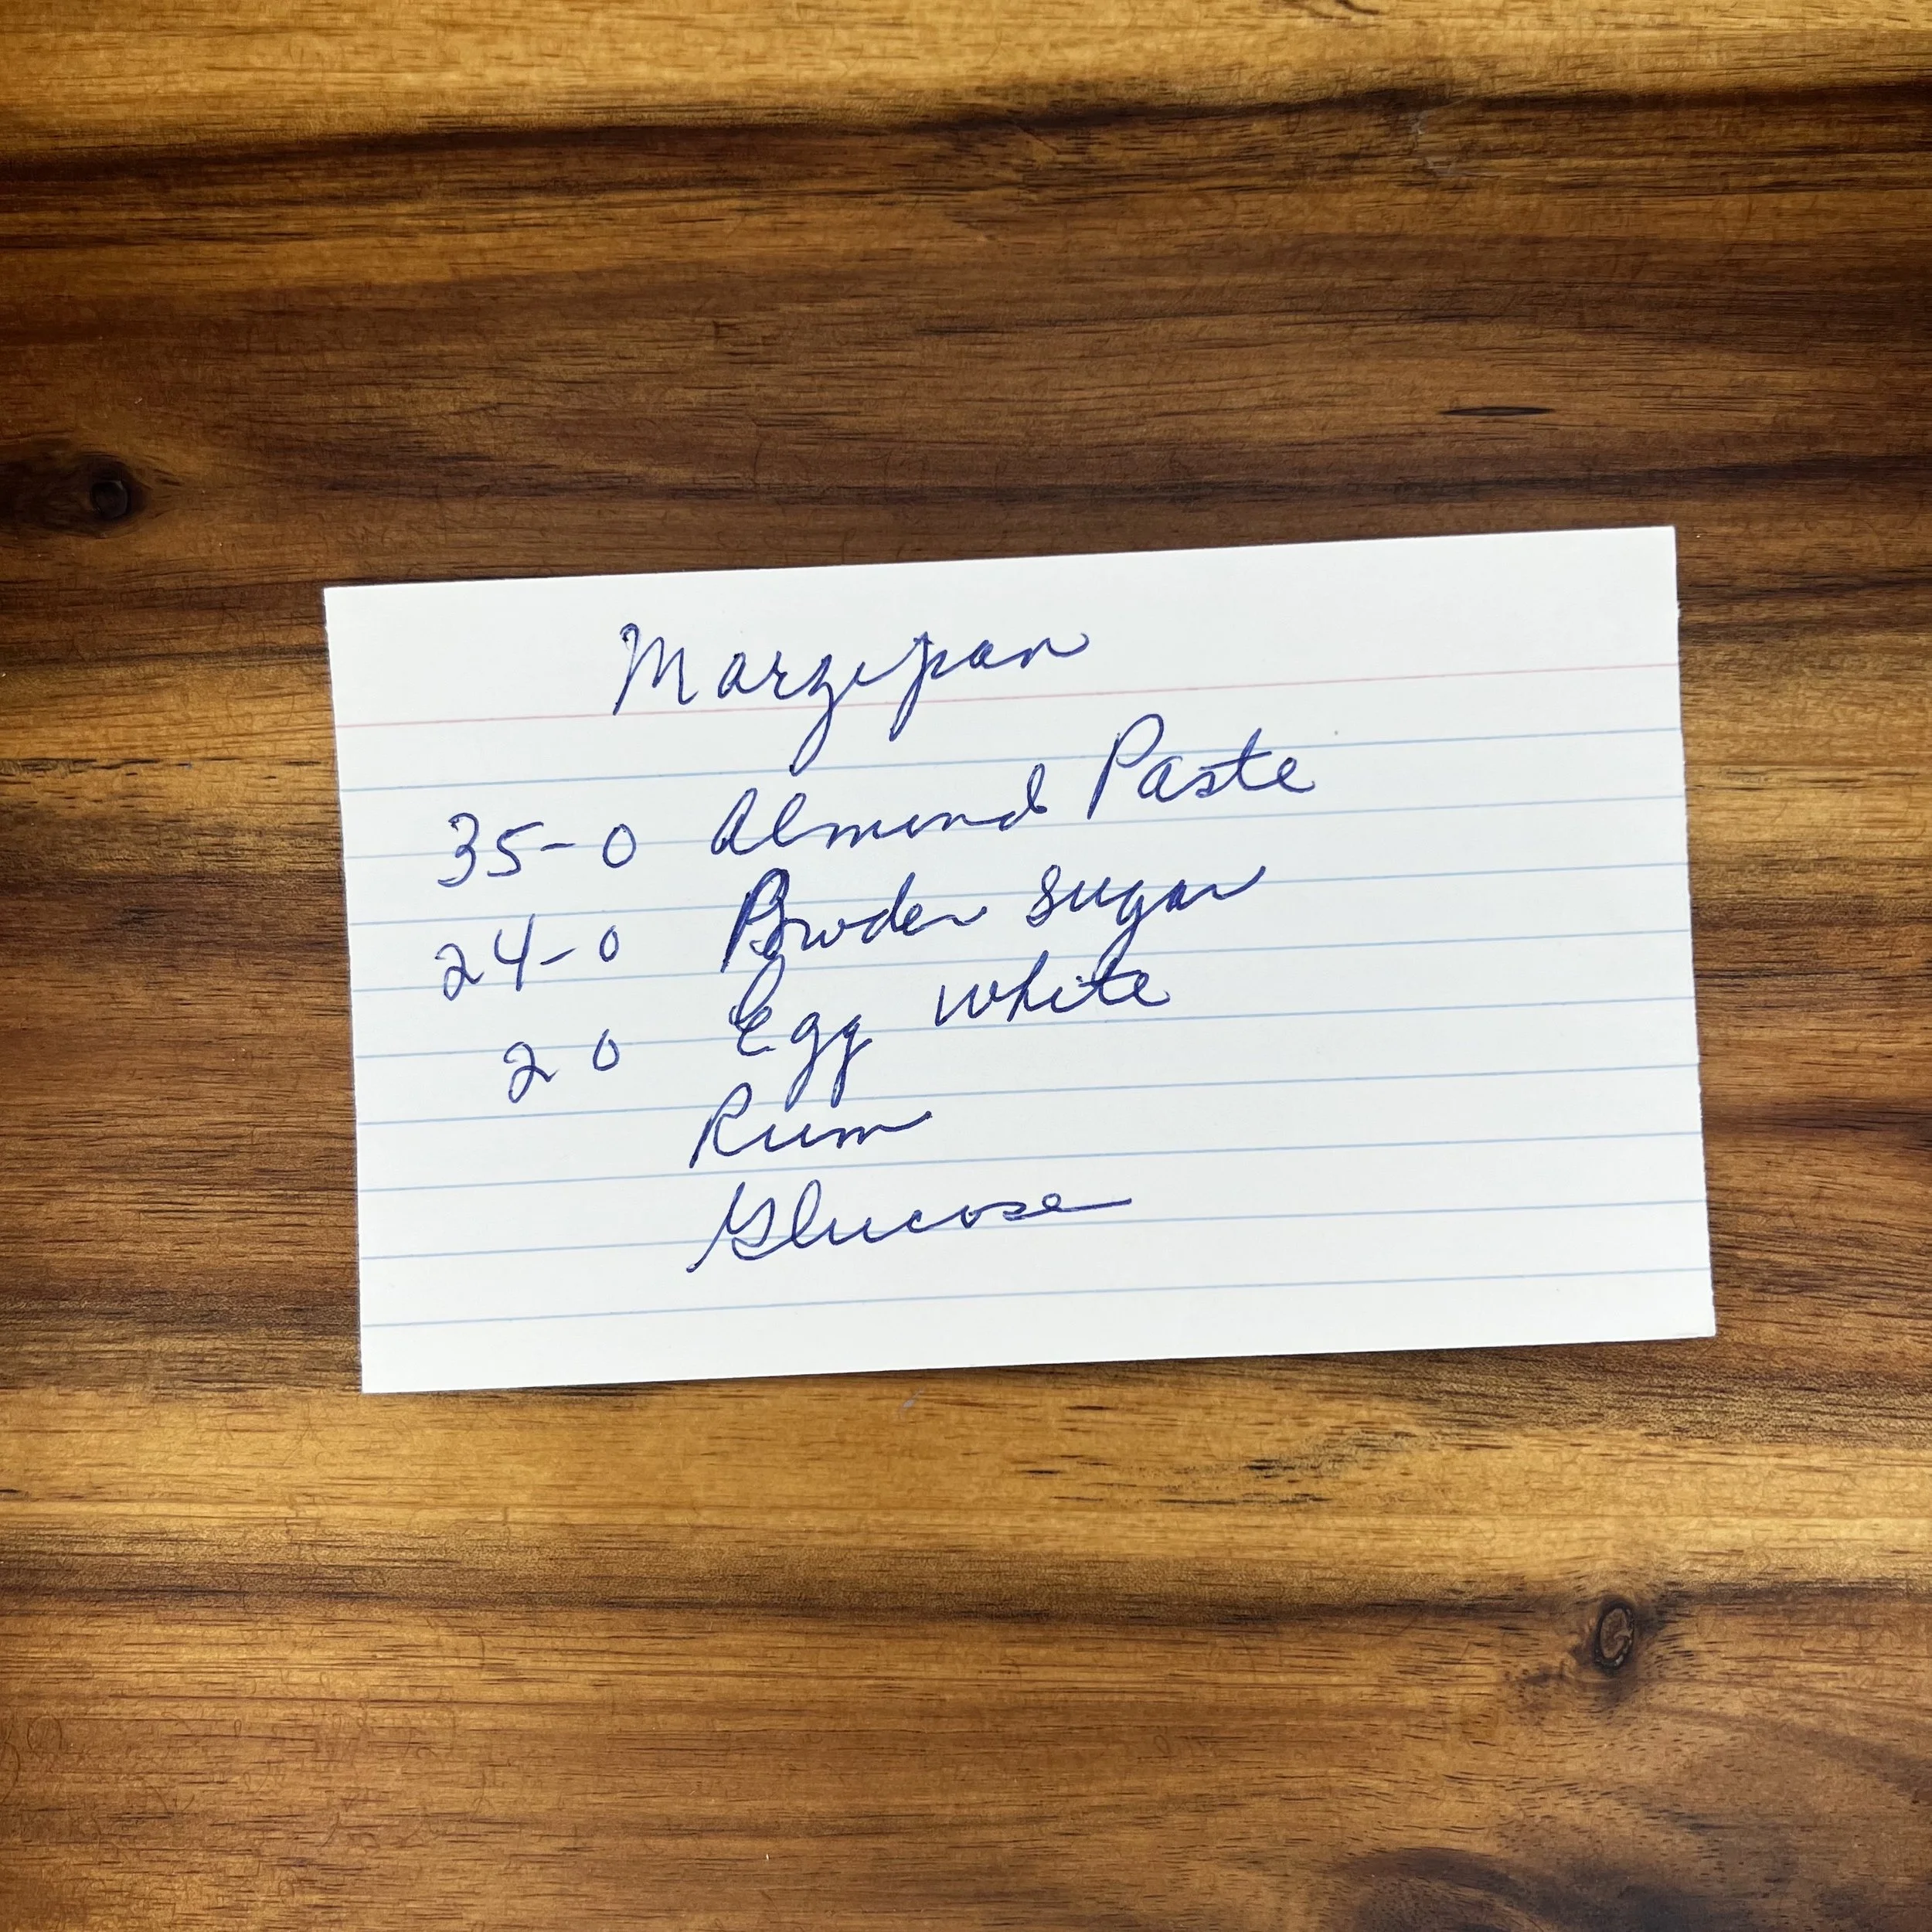 Marzipan
35-0 Almond Paste
24-0 Powder Sugar
2 0 Egg White
Rum
Glucose